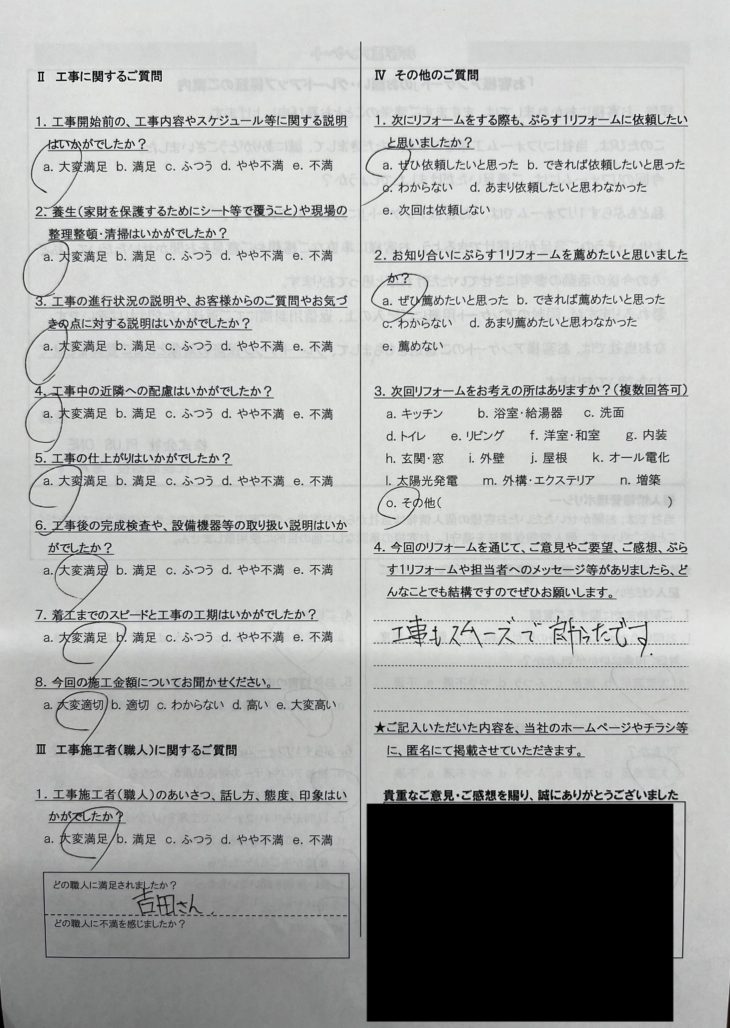 Ⅱ 工事に関するご質問
1. 工事開始前の、工事内容やスケジュール等に関する説明
はいかがでしたか？
a. 大変満足 b. 満足 c. ふつう d. やや不満 e. 不満
2. 養生（家財を保護するためにシート等で覆うこと）や現場の
整理整頓・清掃はいかがでしたか？
a. 大変満足 b. 満足 c. ふつう d. やや不満 e. 不満
3. 工事の進行状況の説明や、お客様からのご質問やお気づ
きの点に対する説明はいかがでしたか？
a. 大変満足 b. 満足 c. ふつう d. やや不満 e. 不満
4. 工事中の近隣への配慮はいかがでしたか？
a. 大変満足 b. 満足 c. ふつう d. やや不満 e. 不満
5. 工事の仕上がりはいかがでしたか？
a. 大変満足 b. 満足 c. ふつう d. やや不満 e. 不満
6. 工事後の完成検査や、設備機器等の取り扱い説明はいか
がでしたか？
a. 大変満足 b. 満足 c. ふつう d. やや不満 e. 不満
7. 着工までのスピードと工事の工期はいかがでしたか？
a. 大変満足 b. 満足 c. ふつう d. やや不満 e. 不満
8. 今回の施工金額についてお聞かせください。
a. 大変適切 b. 適切 c. わからない d. 高い e. 大変高い
Ⅲ 工事施工者（職人）に関するご質問
1. 工事施工者（職人）のあいさつ、話し方、態度、印象はい
かがでしたか？
a. 大変満足 b. 満足 c. ふつう d. やや不満 e. 不満
どの職人に満足されましたか？
吉田さん.
どの職人に不満を感じましたか？
Ⅳ その他のご質問
1. 次にリフォームをする際も、ぷらす1リフォームに依頼したい
と思いましたか？
a. ぜひ依頼したいと思った b. できれば依頼したいと思った
c. わからない d. あまり依頼したいと思わなかった
e. 次回は依頼しない
2. お知り合いにぷらす1リフォームを薦めたいと思いました
か？
a. ぜひ薦めたいと思った b. できれば薦めたいと思った
c. わからない d. あまり薦めたいと思わなかった
e. 薦めない
3. 次回リフォームをお考えの所はありますか？（複数回答可）
a. キッチン b. 浴室・給湯器 c. 洗面
d. トイレ e. リビング f. 洋室・和室 g. 内装
h. 玄関・窓 i. 外壁 j. 屋根 k. オール電化
l. 太陽光発電 m. 外構・エクステリア n. 増築
o. その他（ ）
4. 今回のリフォームを通じて、ご意見やご要望、ご感想、ぷら
す1リフォームや担当者へのメッセージ等がありましたら、ど
んなことでも結構ですのでぜひお願いします。
工事もスムーズで良かったです.
★ご記入いただいた内容を、当社のホームページやチラシ等
に、匿名にて掲載させていただきます。
貴重なご意見・ご感想を賜り、誠にありがとうございました